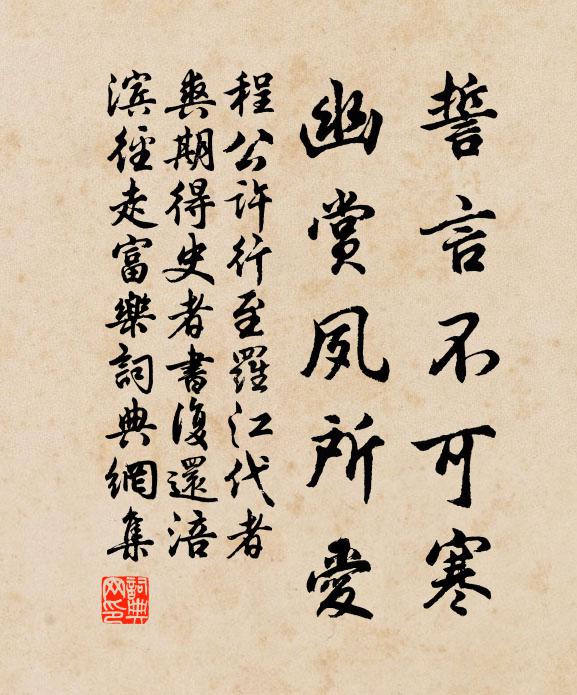 誓言不可寒
幽賞夙所愛
程公許行至羅江代者
爽期得史者書復還涪
濱徑走富樂詞典網集
詞典
网印